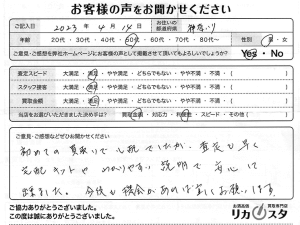 お客様の声をお聞かせください
ご記入日 2023年4月14日 お住いの都道府県 神奈川
年齢 20代・30代・40代・50代・60代・70代・80代〜 性別 男・女
ご意見・ご感想を弊社ホームページにお客様の声として掲載させて頂いてもよろしいでしょうか? Yes・No
査定スピード 大満足・満足・やや満足・どちらでもない・やや不満・不満・( )
スタッフ接客 大満足・満足・やや満足・どちらでもない・やや不満・不満・( )
買取金額 大満足・満足・やや満足・どちらでもない・やや不満・不満・( )
当店をお選びいただきました決め手は? 買取金額・対応力・利便性・スピード・その他( )
ご意見・ご感想などぜひお聞かせください
初めての買取いで し他が、査定も早く
宅配キットや わかりやすい説明で安心して
出来ました。今後も機会があれば宜しくお願いします
ご協力ありがとうございました。
この度は誠にありがとうございました。
お酒高価 買取専門店
リカスタ